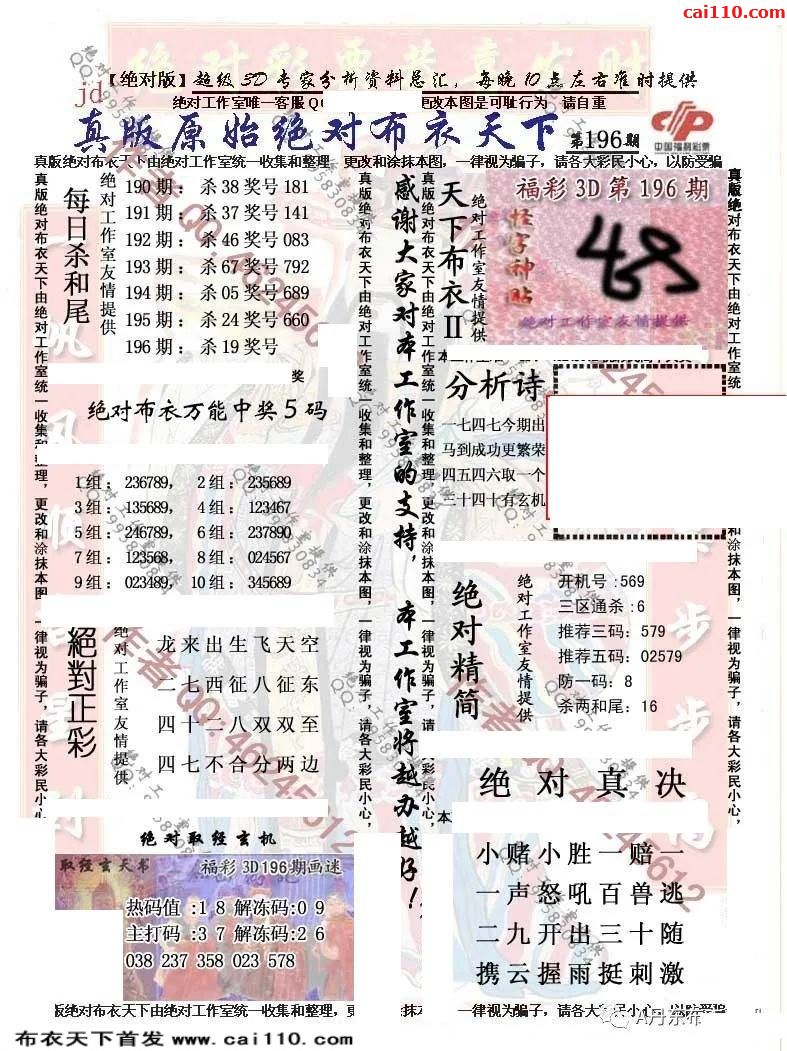 cai110.com
【绝对版】超级3D专家分析资料总汇，每晚10点左右准时提供
jd
绝对工作室唯一客服Q
更改本图是可耻行为 请自重
真版原始绝对布衣天下
第196期
中国福利彩票
真版绝对布衣天下由绝对工作室统一收集和整理，更改和涂抹本图，一律视为骗子，请各大彩民小心，以防受骗
每日杀和尾
绝对工作室友情提供
190期：杀38奖号181
191期：杀37奖号141
192期：杀46奖号083
193期：杀67奖号792
194期：杀05奖号689
195期：杀24奖号660
196期：杀19奖号
奖
绝对布衣万能中奖5码
1组：236789， 2组：235689
3组：135689， 4组：123467
5组：246789， 6组：237890
7组：123568， 8组：024567
9组：023489， 10组：345689
絕對正彩
绝对工作室友情提供
龙来出生飞天空
二七西征八征东
四十二八双双至
四七不合分两边
绝对取经玄机
取经玄天书
福彩3D196期画迷
热码值:18解冻码:09
主打码:37解冻码:26
038 237 358 023 578
感谢大家对本工作室的支持，本工作室将越办越好！
天下布衣II
绝对工作室友情提供
福彩3D第196期
怪字神贴
绝对工作室友情提供
分析诗
一七四七今期出
马到成功更繁荣
四五四六取一个
三十四十有玄机
绝对精简
绝对工作室友情提供
开机号:569
三区通杀:6
推荐三码:579
推荐五码:02579
防一码：8
杀两和尾：16
绝对真决
小赌小胜一赔一
一声怒吼百兽逃
二九开出三十随
携云握雨挺刺激
真版绝对布衣天下由绝对工作室统一收集和整理，更改和涂抹本图，一律视为骗子，请各大彩民小心，
版绝对布衣天下由绝对工作室统一收集和整理，更
涂抹本图，一律视为骗子，请各大彩民小心，以防受骗
A丹东布
布衣天下首发 www.cai110.com